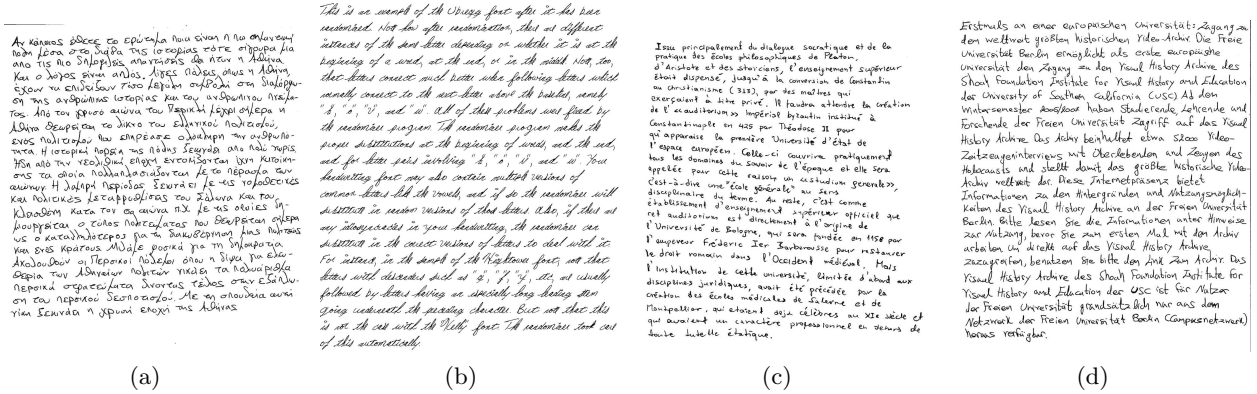 Αν κάποιος έθετε το ερώτημα ποια είναι η πιο σημαντική
πόλη μέσα στο διάβα της ιστορίας τότε σίγουρα μια
από τις πιο δημοφιλείς απαντήσεις θα ήταν η Αθήνα.
Και ο λόγος είναι απλός. Λίγες πόλεις, όπως η Αθήνα,
έχουν να επιδείξουν τόσο μεγάλη συμβολή στη διαμόρφω-
ση της ανθρώπινης ιστορίας και του ανθρώπινου πνεύμα-
τος. Από τον χρυσό αιώνα του Περικλή μέχρι σήμερα η
Αθήνα θεωρείται το λίκνο του ελληνικού πολιτισμού,
ενός πολιτισμού που επηρέασε ολόκληρη την ανθρωπό-
τητα. Η ιστορική πορεία της πόλης ξεκινάει από πολύ νωρίς.
Ήδη από την νεολιθική εποχή εντοπίζονται ίχνη κατοίκη-
σης τα οποία πολλαπλασιάζονται με το πέρασμα των
αιώνων. Η λαμπρή περίοδος ξεκινάει με τις νομοθετικές
και πολιτικές μεταρρυθμίσεις του Σόλωνα και του
Κλεισθένη κατά τον 6ο αιώνα π.Χ. με τις οποίες δη-
μιουργείται ο τύπος πολιτεύματος που θεωρείται σήμερα
ως ο καταλληλότερος για τη διακυβέρνηση μιας πολιτείας
και ενός κράτους. Μιλάμε φυσικά για τη δημοκρατία.
Ακολουθούν οι Περσικοί πόλεμοι όπου η δίψα για ελευ-
θερία των Αθηναίων πολιτών νικάει τα πολυάριθμα
περσικά στρατεύματα δίνοντας τέλος στην εξάπλω-
ση του περσικού δεσποτισμού. Με τη σπουδαία αυτή
νίκη ξεκινάει η χρυσή εποχή της Αθήνας
(a)
This is an example of the Ubiezq font after it has been
randomized. Note how after randomization, there are different
instances of the same letter depending on whether it is at the
beginning of a word, at the end, or in the middle. Note, too,
that letters connect much better when following letters which
normally connect to the next letter above the baseline, namely
"b", "o", "v", and "w". All of these problems were fixed by
the randomizer program. The randomizer program makes the
proper substitutions at the beginning of words, and the end,
and for letter pairs involving "b", "o", "v", and "w". Your
handwriting font may also contain multiple versions of
common letters like the vowels, and if so the randomizer will
substitute in random versions of these letters. Also, if there are
any idiosyncrasies in your handwriting, the randomizer can
substitute in the correct versions of letters to deal with it.
For instance, in the sample of the Hightower font, note that
letters with descenders such as "g", "f", "y", etc, are usually
followed by letters having an especially long leading stem
going underneath the preceding character. But note that this
is not the case with the Kelly font. The randomizer took care
of this automatically.
(b)
Issu principalement du dialogue socratique et de la
pratique des écoles philosophiques de Platon,
d'Aristote et des stoïciens, l'enseignement supérieur
était dispensé, jusqu'à la conversion de Constantin
au christianisme (313), par des maîtres qui
exerçaient à titre privé. Il faudra attendre la création
de l'«auditorium» Impérial byzantin institué à
Constantinople en 425 par Théodose II pour
qu'apparaisse la première Université d'état de
l'espace européen. Celle-ci couvrira pratiquement
tous les domaines du savoir de l'époque et elle sera
appelée pour cette raison «studium generale»,
c'est-à-dire une "école générale" au sens
propre du terme. Au reste, c'est comme
établissement d'enseignement supérieur officiel que
cet auditorium est directement à l'origine de
l'Université de Bologne, qui sera fondée en 1158 par
l'empereur Fréderic Ier Barberousse pour restaurer
le droit romain dans l'Occident médiéval. Mais
l'institution de cette université, limitée d'abord aux
disciplines juridiques, avait été précédée par la
création des écoles médicales de Salerne et de
Montpellier, qui étaient déjà célèbres au XIe siècle et
qui avaient un caractère professionnel en dehors de
toute tutelle étatique.
(c)
Erstmals an einer europäischen Universität: Zugang zu
dem weltweit größten historischen Video-Archiv Die Freie
Universität Berlin ermöglicht als erste europäische
Universität den Zugang zu den Visual History Archive des
Shoah Foundation Institute for Visual History and Education
der University of Southern California (USC) Ab dem
Wintersemester 2006/2007 haben Studierende, Lehrende und
Forschende der Freien Universität Zugriff auf das Visual
History Archive. Das Achiv beinhaltet etwa 52000 Video-
Zeitzeugeninterviews mit Überlebenden und Zeugen des
Holocausts und stellt damit das größte historische Video-
Archiv weltweit dar. Diese Internetpräsenz bietet
Informationen zu den Hintergründen und Nutzungsmöglich-
keiten des Visual History Archive an der Freien Universität
Berlin. Bitte lesen Sie die Informationen unter Hinweise
zur Nutzung, bevor Sie zum ersten Mal mit den Archiv
arbeiten. Um direkt auf das Visual History Archive,
zuzugreifen, benutzen Sie bitte den Link Zum Archiv. Das
Visual History Archive des Shoah Foundation Institute for
Visual History and Education der USC ist für Nutzer
der Freien Universität grundsätzlich nur aus dem
Netzwerk der Freien Universität Berlin (Campusnetzwerk)
heraus verfügbar.
(d)